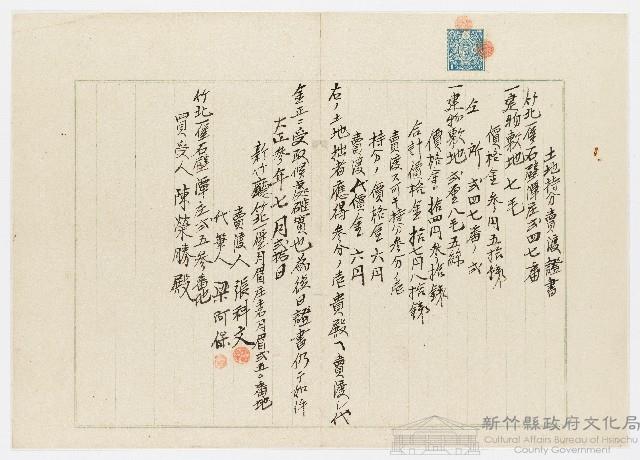 土地持分賣渡證書
竹北一堡石壁潭庄弐四七番
一建物敷地七毛
價格金参円五拾錢
仝所弐四七番ノ弐
一建物敷地弐厘八毛五絲
價格金拾四円参拾錢
合計價格金拾七円八拾錢
賣渡スヘキ持分参分ノ壱
持分ノ價格金六円
賣渡代價金六円
右ノ土地拙者應得参分ノ壱貴殿ヘ賣渡シ代
金正ニ受取候處確實也為後日證書仍テ如件
大正参年七月弐拾日
新竹廳竹北一堡月眉庄土名月眉弐五〇番地
賣渡人 張科文
代筆人 梁阿保
竹北一堡石壁潭庄弐五参番地
買受人 陳榮勝殿
新竹縣政府文化局
Cultural Affairs Bureau of Hsinchu
County Government